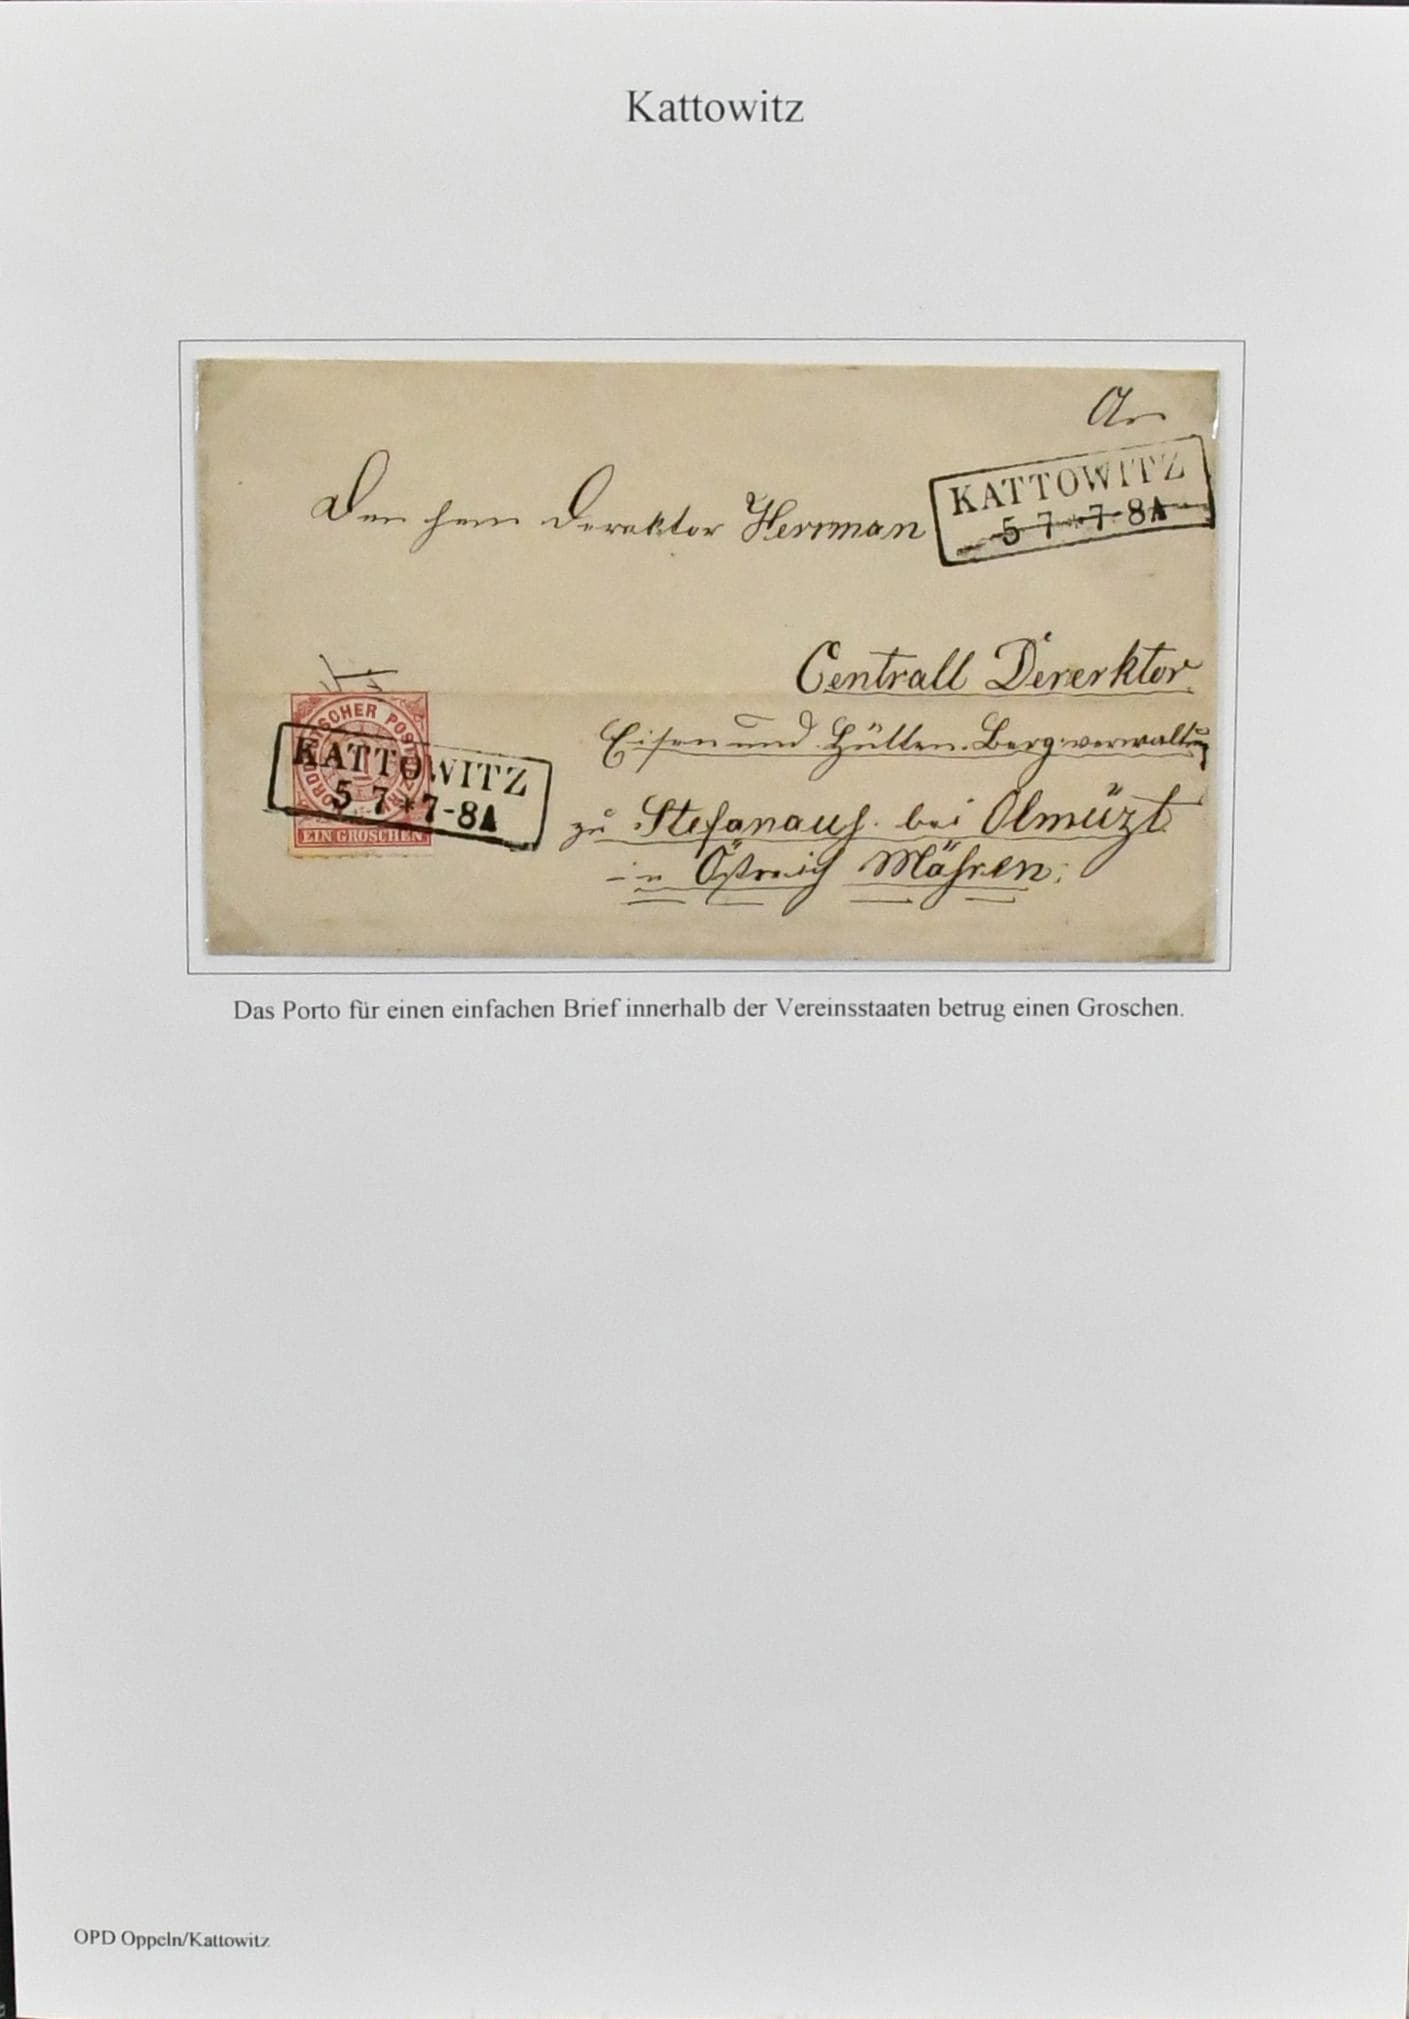 Kattowitz
An
Den Herrn Derektor Herrman
KATTOWITZ
5 7 * 7-8A
Centrall Dererktor
Eisen und Hütten Bergverwaltung
NORDDEUTSCHER POSTBEZIRK
EIN GROSCHEN
KATTOWITZ
5 7 * 7-8A
zu Stefanau bei Olmüzt
in Östreich Mähren:
Das Porto für einen einfachen Brief innerhalb der Vereinsstaaten betrug einen Groschen.
OPD Oppeln/Kattowitz